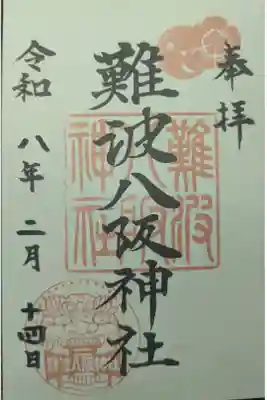 奉拝
難波八阪神社
難波
八阪
神社
令和八年二月十四日